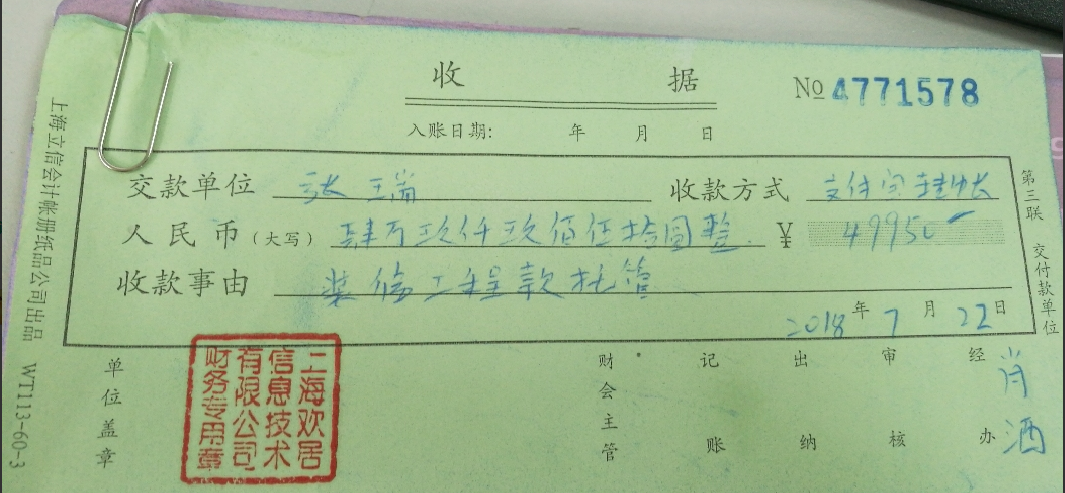 收 据
No 4771578
入账日期: 年 月 日
交款单位 张瑞 收款方式 支付宝转帐
人民币(大写) 肆万玖仟玖佰伍拾圆整 ¥ 49950
收款事由 装修工程款托管
2018年7月22日
单位盖章
财会主管
记账
出纳
审核
经办
肖洒
上海欢居
信息技术
有限公司
财务专用章
第三联 交付款单位
上海立信会计帐册纸品公司出品 WT113-60-3